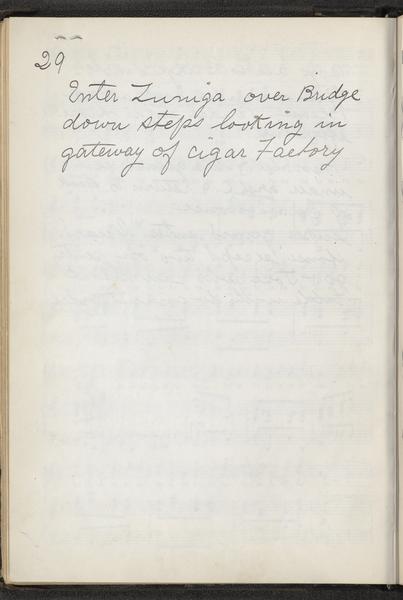 29
Enter Zuniga over Bridge
down steps looking in
gateway of cigar Factory